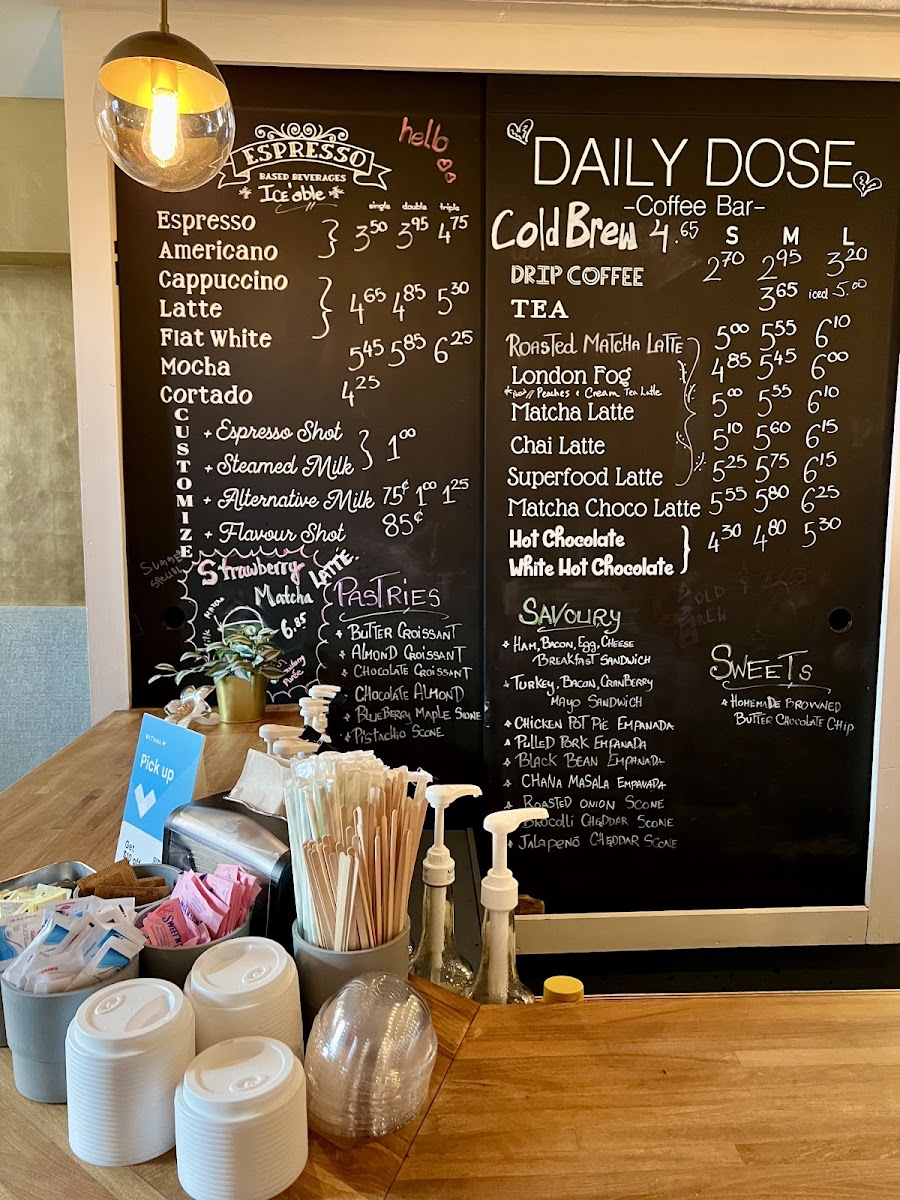 hello
ESPRESSO
BASED BEVERAGES
Ice'able
single double triple
Espresso
Americano
3 50 3 95 4 75
Cappuccino
Latte
Flat White
4 65 4 85 5 30
Mocha 5 45 5 85 6 25
Cortado 4 25
CUSTOMIZE
+ Espresso Shot
+ Steamed Milk
1 00
+ Alternative Milk 75¢ 1 00 1 25
+ Flavour Shot 85¢
Summer
Special
Strawberry
Matcha LATTE
6.85
PASTRIES
+ BUTTER CROISSANT
+ ALMOND CROISSANT
+ CHOCOLATE CROISSANT
CHOCOLATE ALMOND
+ BLUEBERRY MAPLE SCONE
+ PISTACHIO SCONE
DAILY DOSE
-Coffee Bar-
Cold Brew 4.65
S M L
DRIP COFFEE 2 70 2 95 3 20
TEA 3 65 iced 5.00
ROASTED MATCHA LATTE 5 00 5 55 6 10
London Fog 4 85 5 45 6 00
Peaches + Cream Tea Latte
Matcha Latte 5 00 5 55 6 10
Chai Latte 5 10 5 60 6 15
Superfood Latte 5 25 5 75 6 15
Matcha Choco Latte 5 55 5 80 6 25
Hot Chocolate
White Hot Chocolate
4 30 4 80 5 30
SAVOURY
+ HAM, BACON, EGG, CHEESE
BREAKFAST SANDWICH
+ TURKEY, BACON, CRANBERRY
MAYO SANDWICH
+ CHICKEN POT PIE EMPANADA
+ PULLED PORK EMPANADA
+ BLACK BEAN EMPANADA
+ CHANA MASALA EMPANADA
+ ROASTED ONION SCONE
BROCOLLI CHEDDAR SCONE
+ JALAPENO CHEDDAR SCONE
SWEETS
+ HOMEMADE BROWNED
BUTTER CHOCOLATE CHIP
RITUAL
Pick up
Get